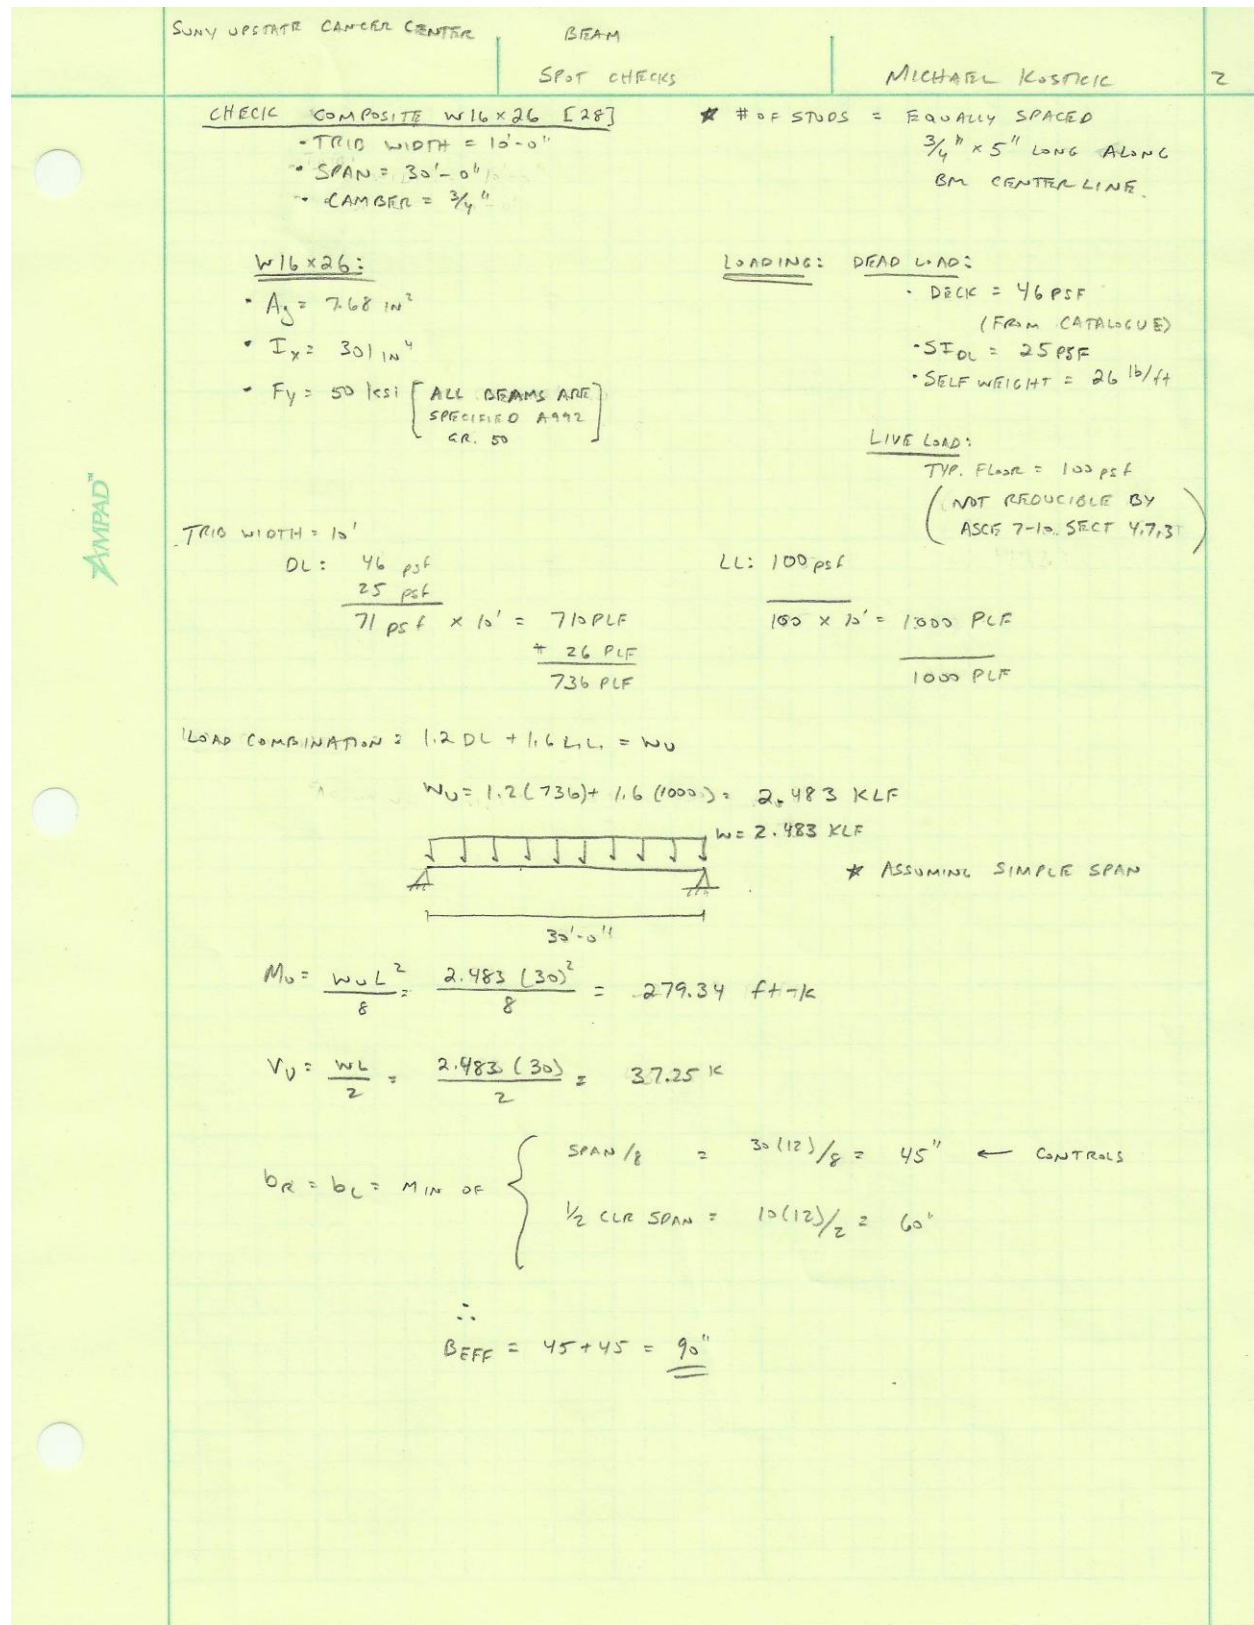 SUNY UPSTATE CANCER CENTER
BEAM
SPOT CHECKS
MICHAEL KOSTICK
2
CHECK COMPOSITE W16×26 [28]
• TRIB WIDTH = 10'-0"
• SPAN = 30'-0"
• CAMBER = 3/4"
* # OF STUDS = EQUALLY SPACED
3/4" × 5" LONG ALONG
BM CENTERLINE.
W16×26:
• Ag = 7.68 IN²
• Ix = 301 IN⁴
• Fy = 50 ksi [ALL BEAMS ARE
SPECIFIED A992
GR. 50]
LOADING: DEAD LOAD:
• DECK = 46 PSF
(FROM CATALOGUE)
• SIDL = 25 PSF
• SELF WEIGHT = 26 lb/ft
LIVE LOAD:
TYP. FLOOR = 100 psf
(NOT REDUCIBLE BY
ASCE 7-10 SECT 4.7.3)
AMPAD™
TRIB WIDTH = 10'
DL: 46 psf
25 psf
71 psf × 10' = 710 PLF
+ 26 PLF
736 PLF
LL: 100 psf
100 × 10' = 1000 PLF
1000 PLF
LOAD COMBINATION = 1.2 DL + 1.6 L.L. = WU
WU = 1.2(736) + 1.6(1000) = 2.483 KLF
W = 2.483 KLF
* ASSUMING SIMPLE SPAN
30'-0"
MU = WUL²/8 = 2.483(30)²/8 = 279.34 ft-k
VU = WL/2 = 2.483(30)/2 = 37.25 K
bR = bL = MIN OF { SPAN/8 = 30(12)/8 = 45" ← CONTROLS
1/2 CLR SPAN = 10(12)/2 = 60"
∴
BEFF = 45+45 = 90"